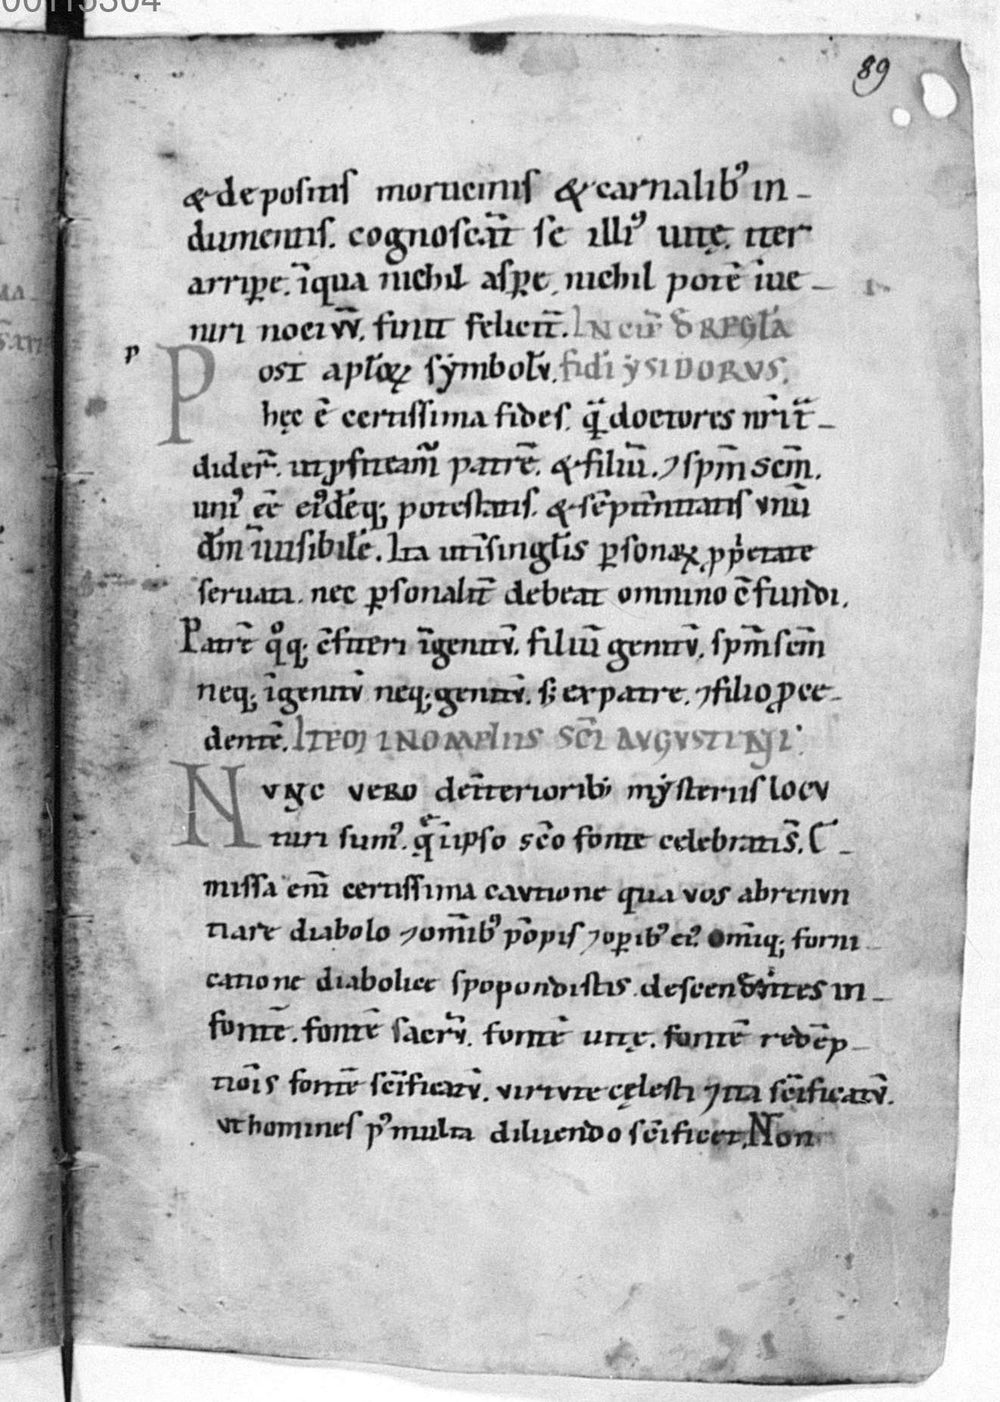 89
& depositis morticinis & carnalib᷒ in-
dumentis. cognoscat̄ se illi᷒ uitę. iter
arripe. īqua nichil aspe, nichil potē īue-
niri nociuū. finit felicit̄. Incip̄ d̄ regl̄a
Post apl̄oꝝ sẏmbolū. fidi ẏsidorus.
p
hęc ē certissima fides. quā doctores nr̄i t̄-
dider̄. ut ꝓfiteam̄ patrē. & filiū. ⁊ sp̄m sc̄m.
uni᷒ eē ei᷒dēq; potestatis. & sēpit̄nitatis unū
dm̄ īuisibilē. Ita ut ī singl̄is ꝑsonaꝝ ꝓp̄etate
seruata. nec ꝑsonalit̄ debeat omnino c̄fundi.
Patrē qͦq; c̄fiteri īgenitū. filiū genitū. sp̄m sc̄m
neq; īgenitū neq; genitū. s; ex patre. ⁊ filio ꝓce-
dentē. Itē oj in omeliis sc̄i augustinj.
Nunc vero de īteriorib; mẏsteriis locu
turi sum᷒. quę īipso sc̄o fonte celebratis.
missa enī certissima cautione qua uos abrenun
tiare diabolo ⁊ om̄ib᷒ pōpis ⁊ oꝑib᷒ ei᷒ om̄iq; forni
catione diabolice spopondistis. descendētes in-
fontē. fontē sacrū. fontē uitę. fontē redēp-
tiōis fontē sc̄ificatū. uirtute cęlesti ⁊ ita sc̄ificatū.
ut homines p᷒ multa diluendo sc̄ificet. Non